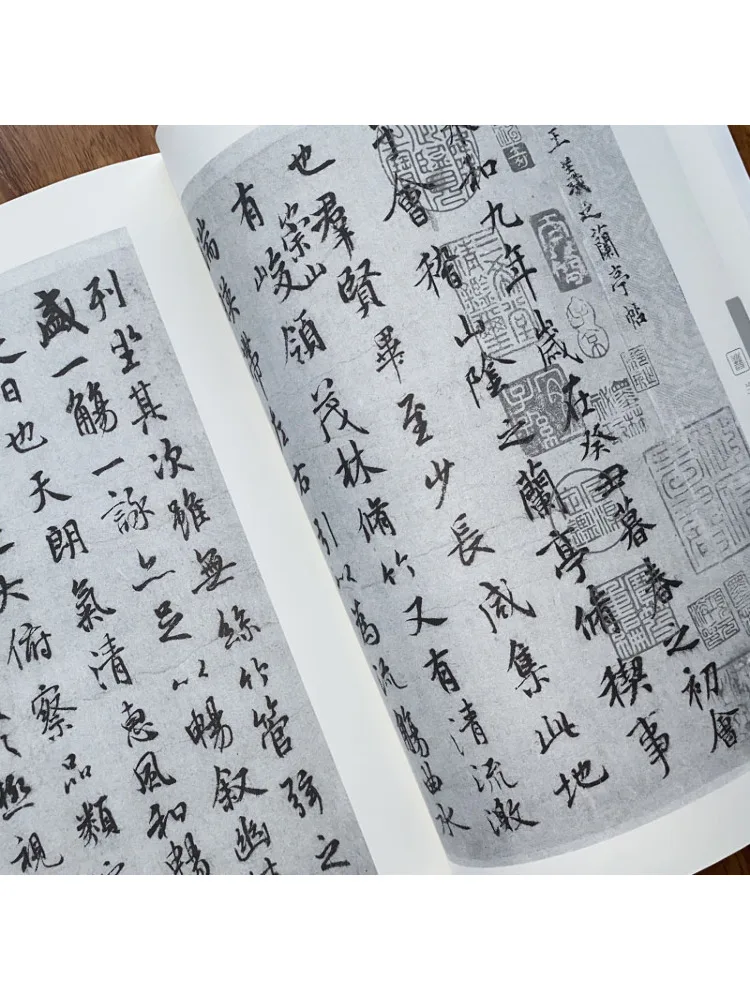 王羲之蘭亭帖
和九年歲在癸丑暮春之初會
會稽山陰之蘭亭脩稧事
也羣賢畢至少長咸集此地
有崇山峻領茂林脩竹又有清流激
湍暎帶左右引以為流觴曲水
列坐其次雖無絲竹管弦之
盛一觴一詠亦足以暢叙幽
日也天朗氣清惠風和暢
大俯察品類
極視